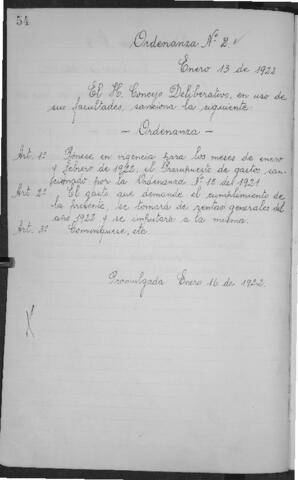 54
Ordenanza Nº 2
Enero 13 de 1922
El H. Concejo Deliberativo, en uso de
sus facultades, sanciona la siguiente
- Ordenanza -
Art. 1º Pónese en vigencia para los meses de enero
y febrero de 1922, el Presupuesto de gastos san-
cionado por la Ordenanza Nº 18 de 1921
Art. 2º El gasto que demande el cumplimiento de
la presente, se tomará de rentas generales del
año 1922 y se imputará a la misma.
Art. 3º Comuníquese, etc
Promulgada Enero 16 de 1922.